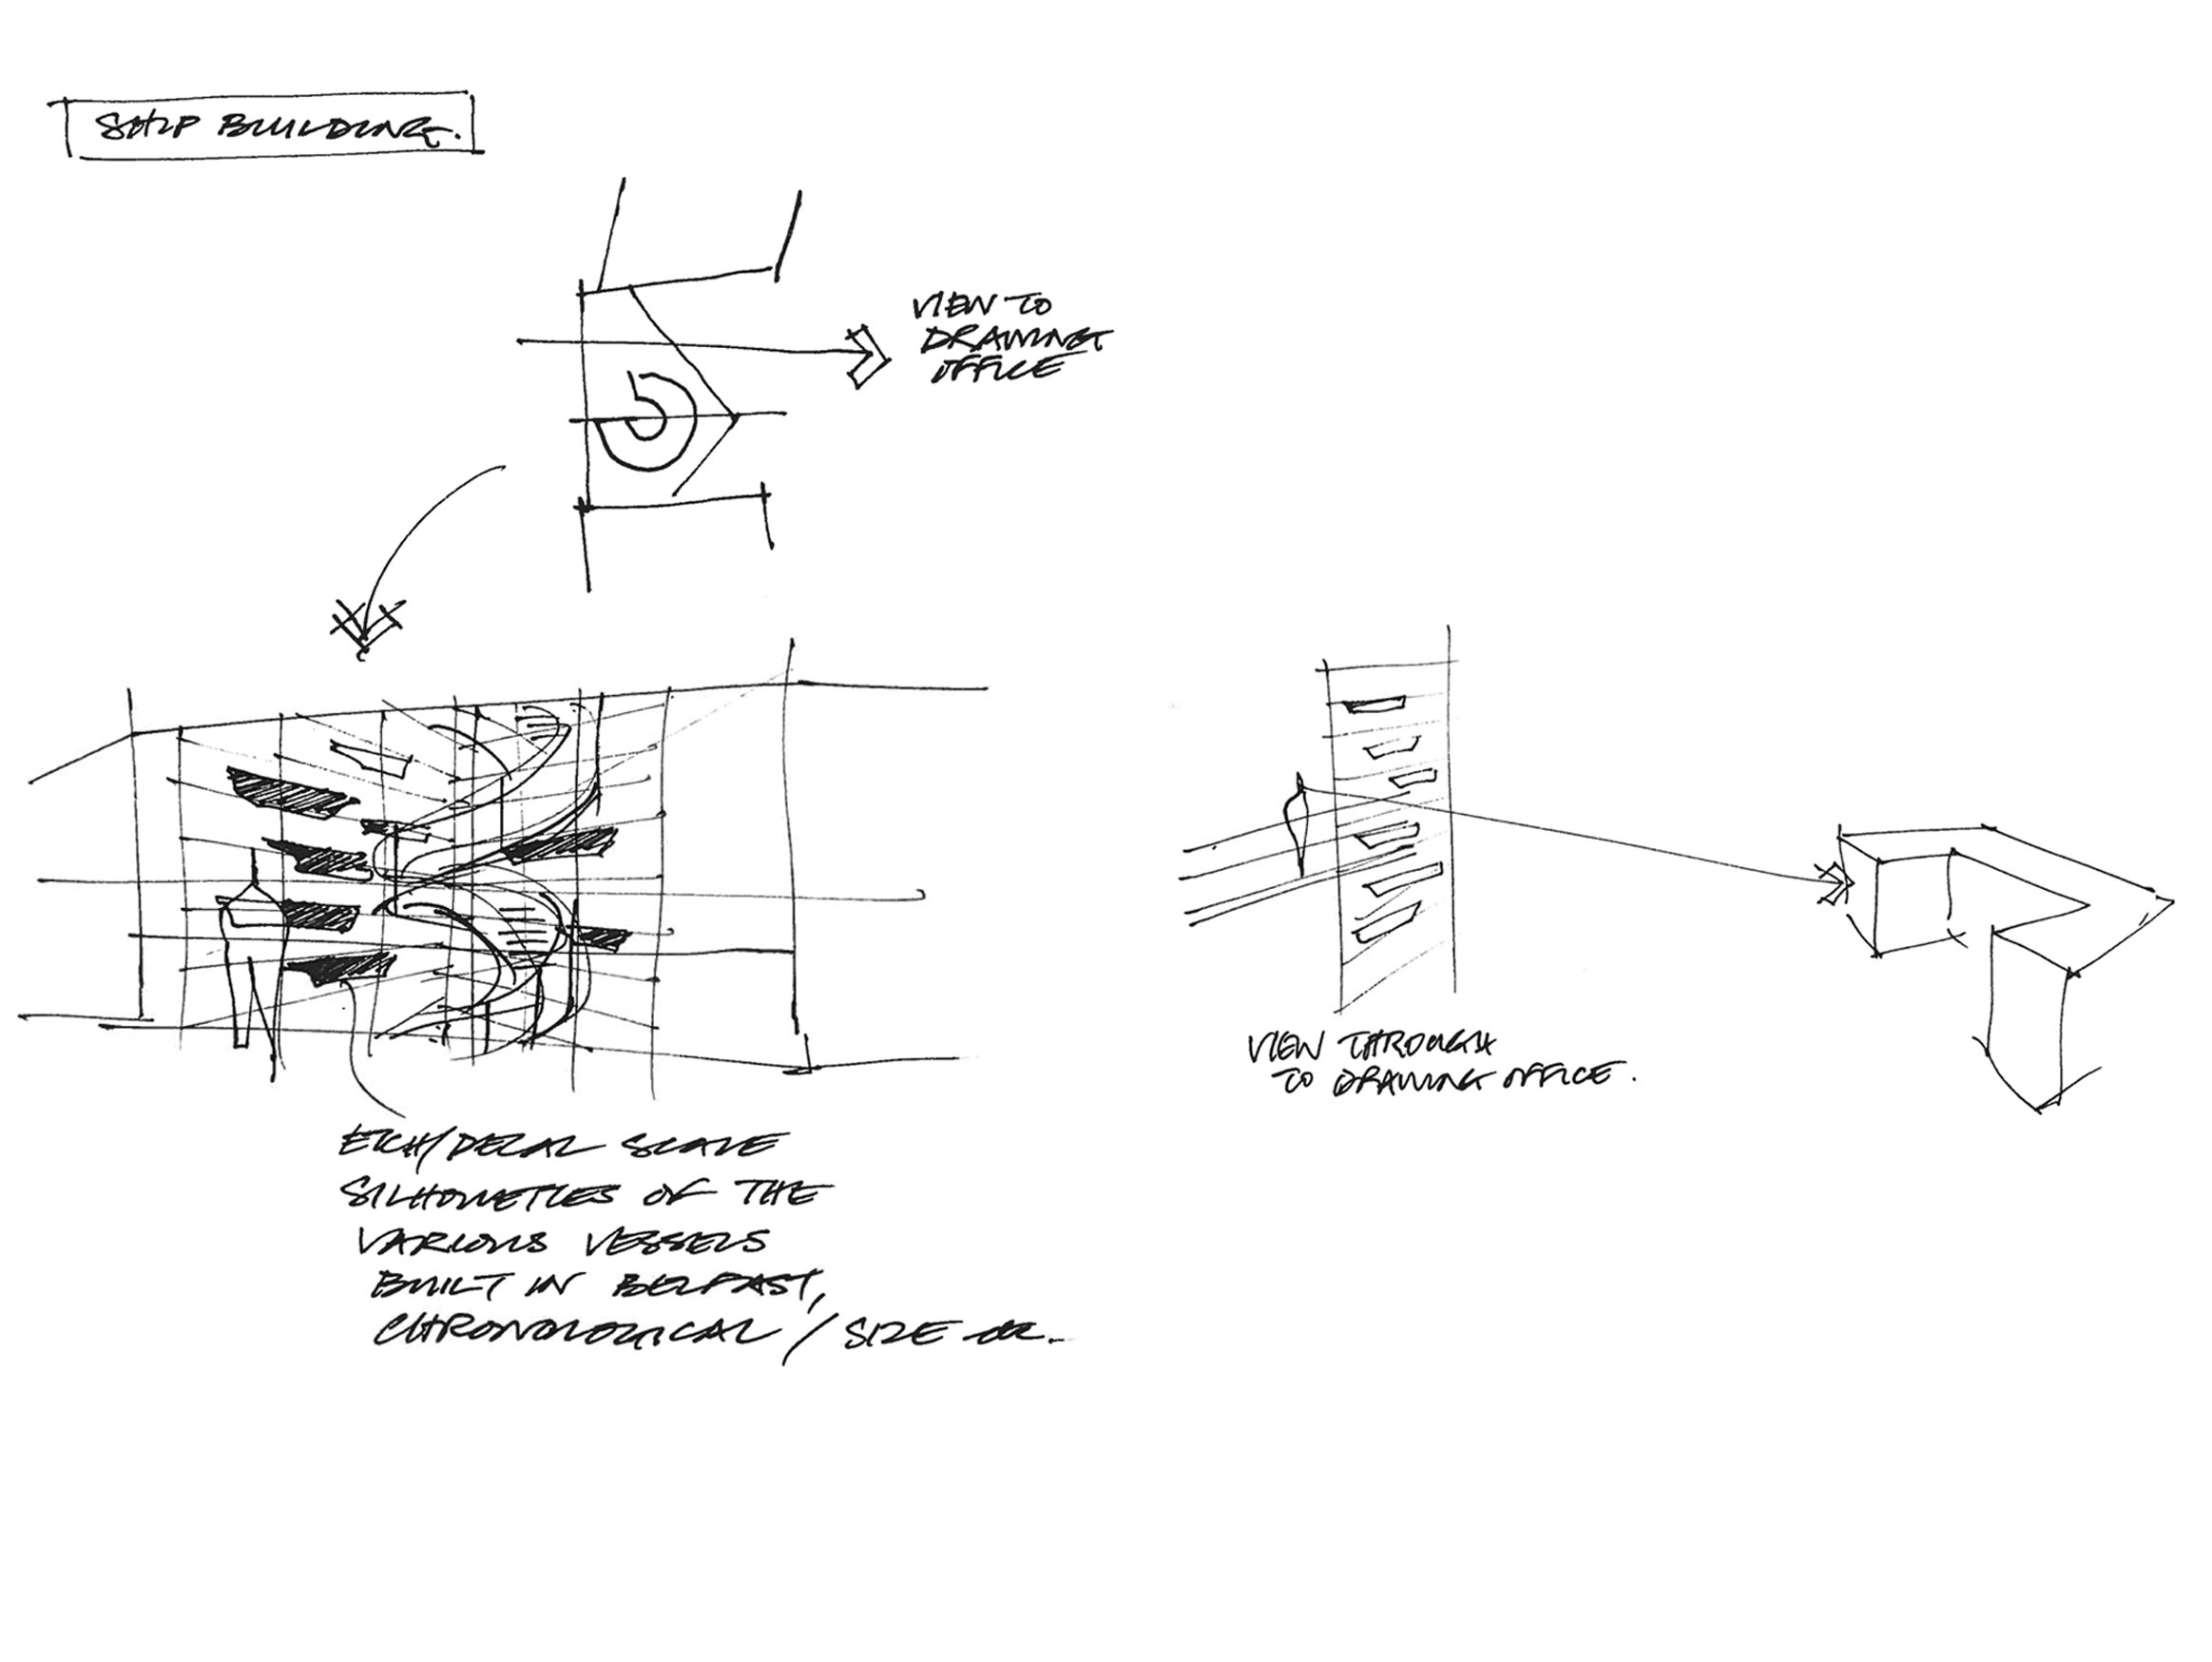 SHIP BUILDING.
VIEW TO
DRAWING
OFFICE
VIEW THROUGH
TO DRAWING OFFICE.
ETCH/DECAL SCALE
SILHOUETTES OF THE
VARIOUS VESSELS
BUILT IN BELFAST,
CHRONOLOGICAL / SIZE etc.